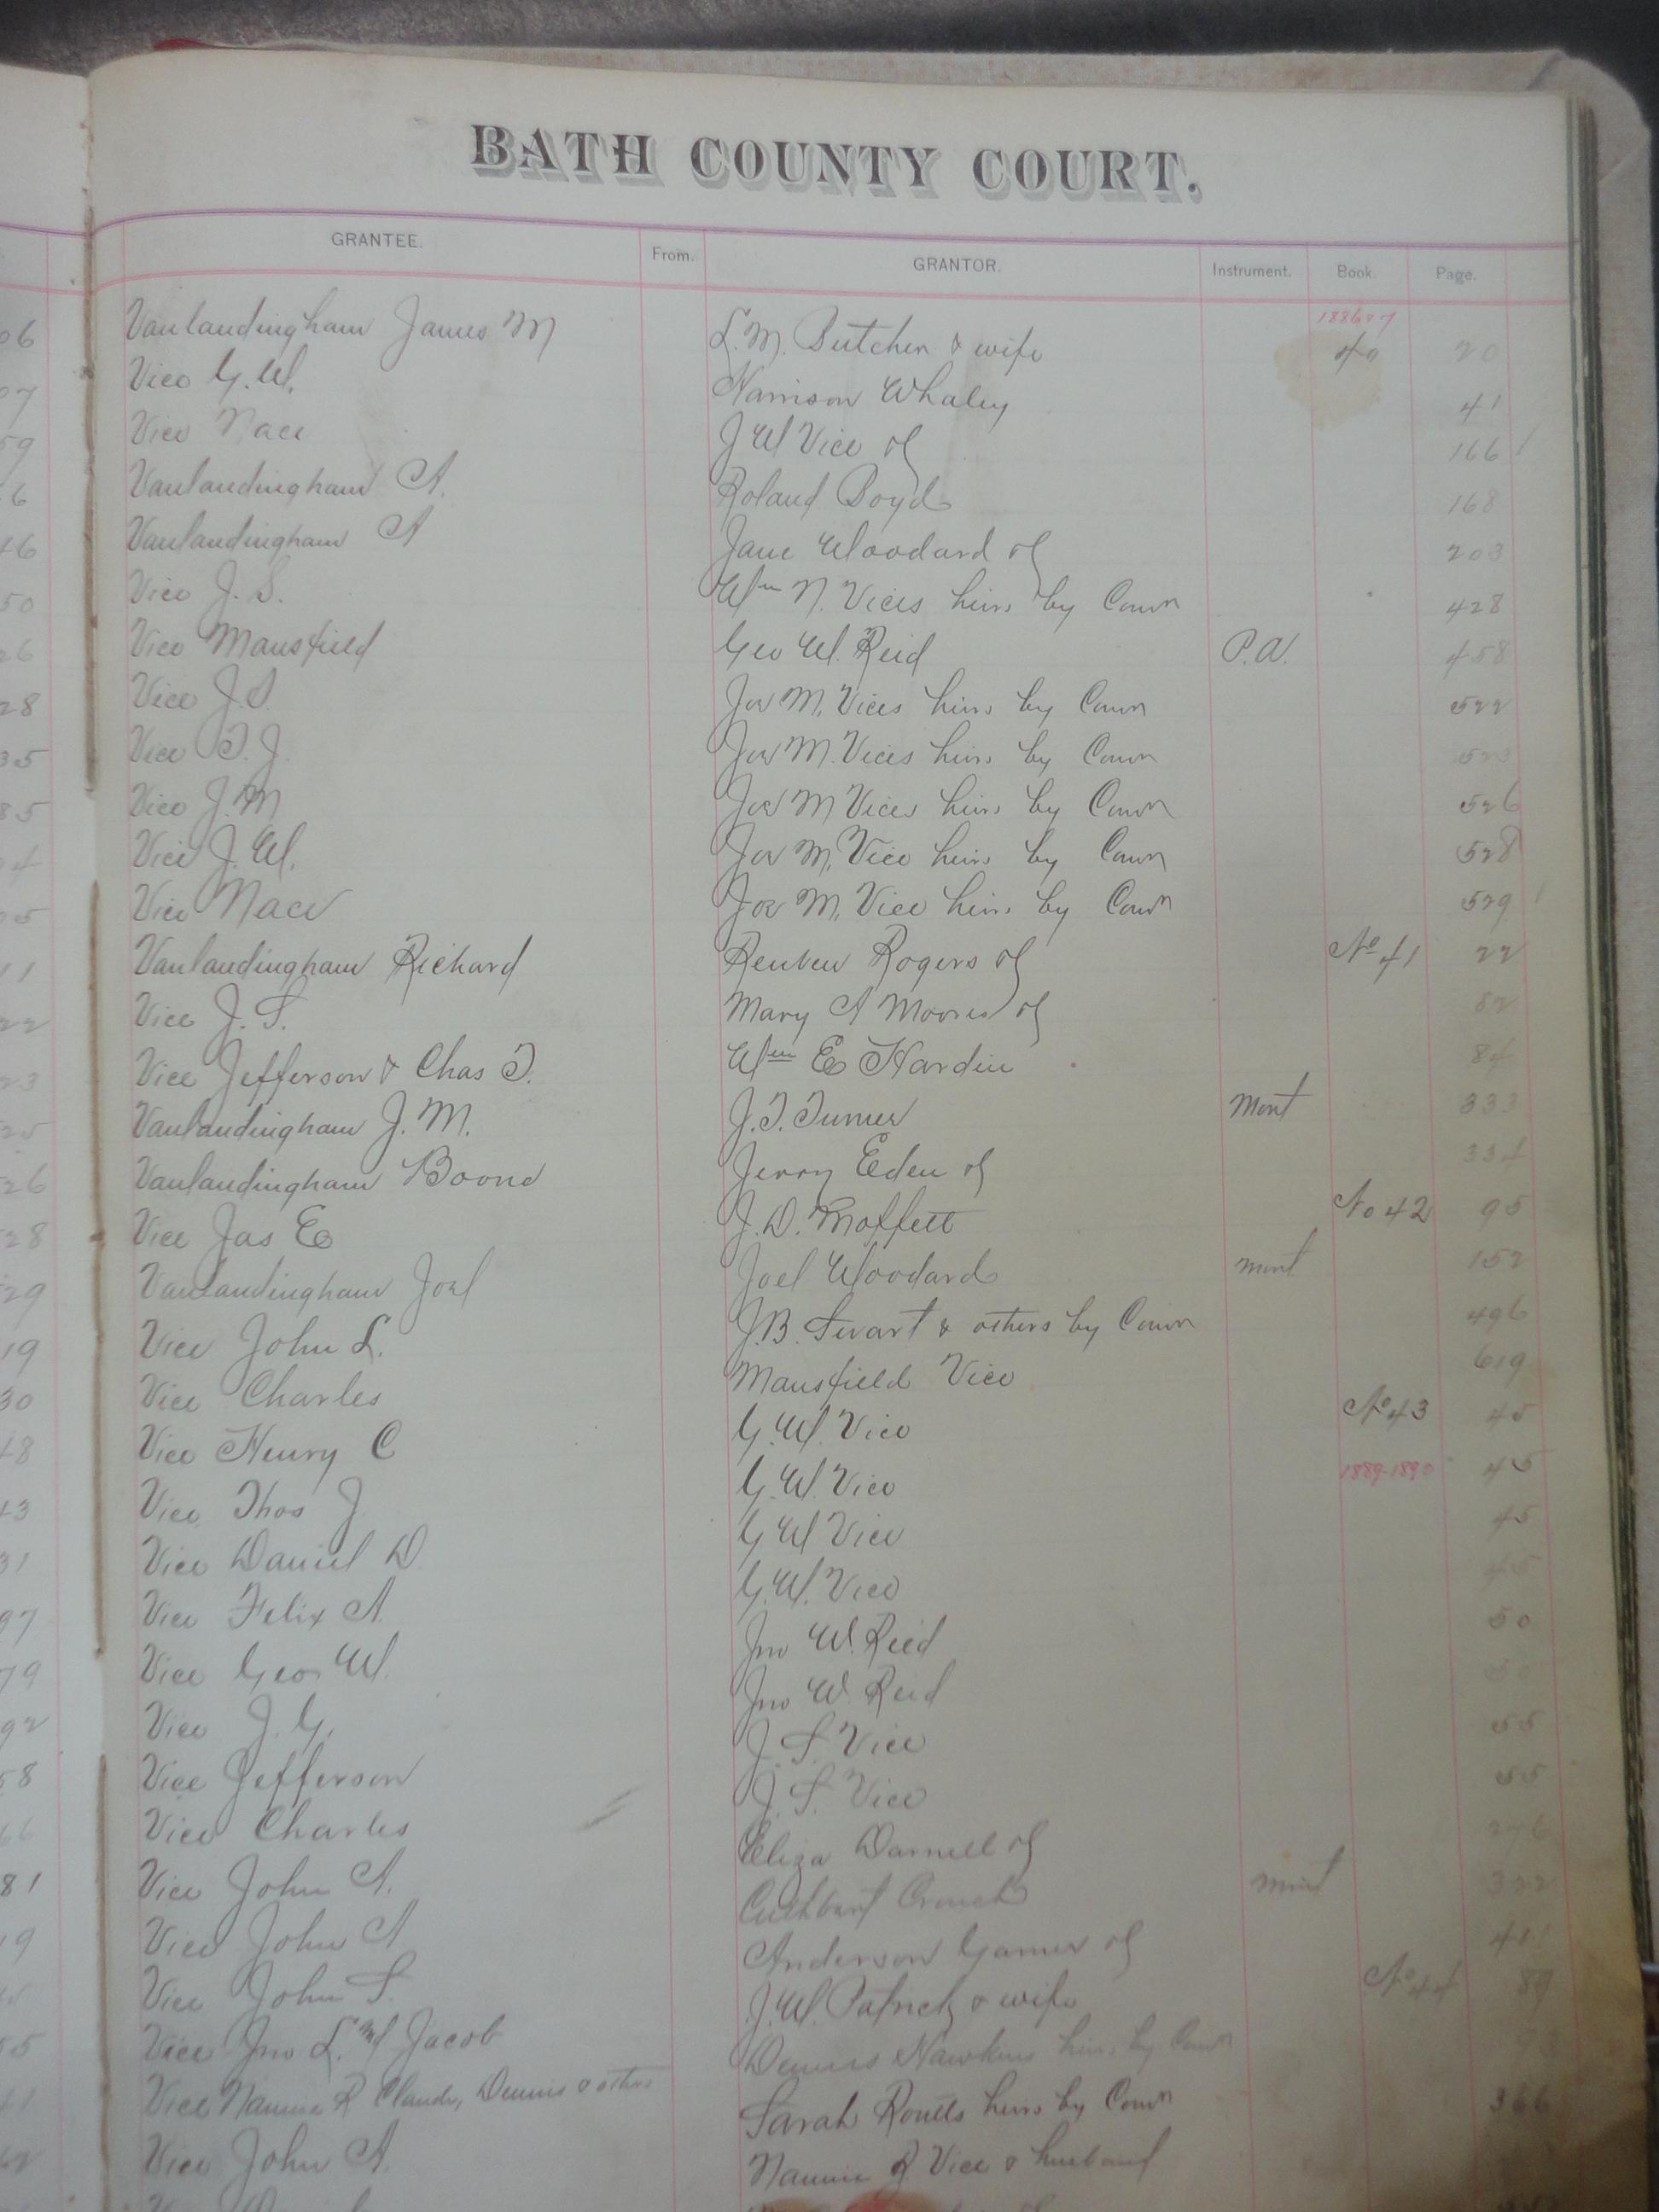 BATH COUNTY COURT.
GRANTEE. From. GRANTOR. Instrument. Book. Page.
1886+7
06 Vanlandingham James M L.M. Butcher & wife 40 20
07 Vice G.W. Harrison Whaley 41
59 Vice Nace J W Vice of 166
6 Vanlandingham A. Roland Boyd 168
46 Vanlandingham A Jane Woodard of 203
50 Vice J.S. Wm N. Vices heirs by Comr 428
26 Vice Mansfield Geo W. Reid P.A. 458
28 Vice J.S. Jos M. Vices heirs by Comr 522
35 Vice T.J. Jos M. Vices heirs by Comr 523
85 Vice J.M Jos M Vices heirs by Comr 526
04 Vice J.W. Jos M. Vice heirs by Comr 528
05 Vice Nace Jos M. Vice heirs by Comr 529
11 Vanlandingham Richard Reuben Rogers of No 41 22
22 Vice J.S. Mary A Moores of 82
23 Vice Jefferson & Chas T. Wm E Hardin 84
25 Vanlandingham J.M. J.T. Turner Mort 333
26 Vanlandingham Boone Jerry Eden of 334
28 Vice Jas E J.D. Moffett No 42 95
29 Vanlandingham Joel Joel Woodard Mort 152
19 Vice John L. J.B. Swart & others by Comr 496
30 Vice Charles Mansfield Vice 619
48 Vice Henry C G.W. Vice No 43 45
43 Vice Thos J G.W. Vice 1889-1890 45
31 Vice Daniel D. G W Vice 45
97 Vice Felix A. G.W. Vice 45
79 Vice Geo W. Jno W. Reid 50
92 Vice J.G. Jno W. Reid 50
58 Vice Jefferson J.S. Vice 55
66 Vice Charles J.S. Vice 55
81 Vice John A. Eliza Darnell of 276
19 Vice John A Cuthbart Crouch Mort
Vice John S. Anderson Garner of
55 Vice Jno L. & Jacob J.W. Patrick & wife No 44 89
Vice Nannie R Claude, Dennis & others Dennis Hawkins heirs by Comr
Vice John A. Sarah Routts heirs by Comr 366
Nannie R Vice & husband